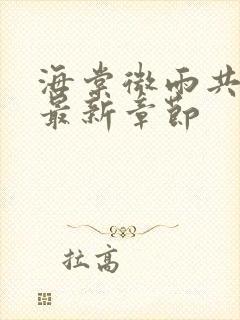 海棠微雨共
最新章節
拉高